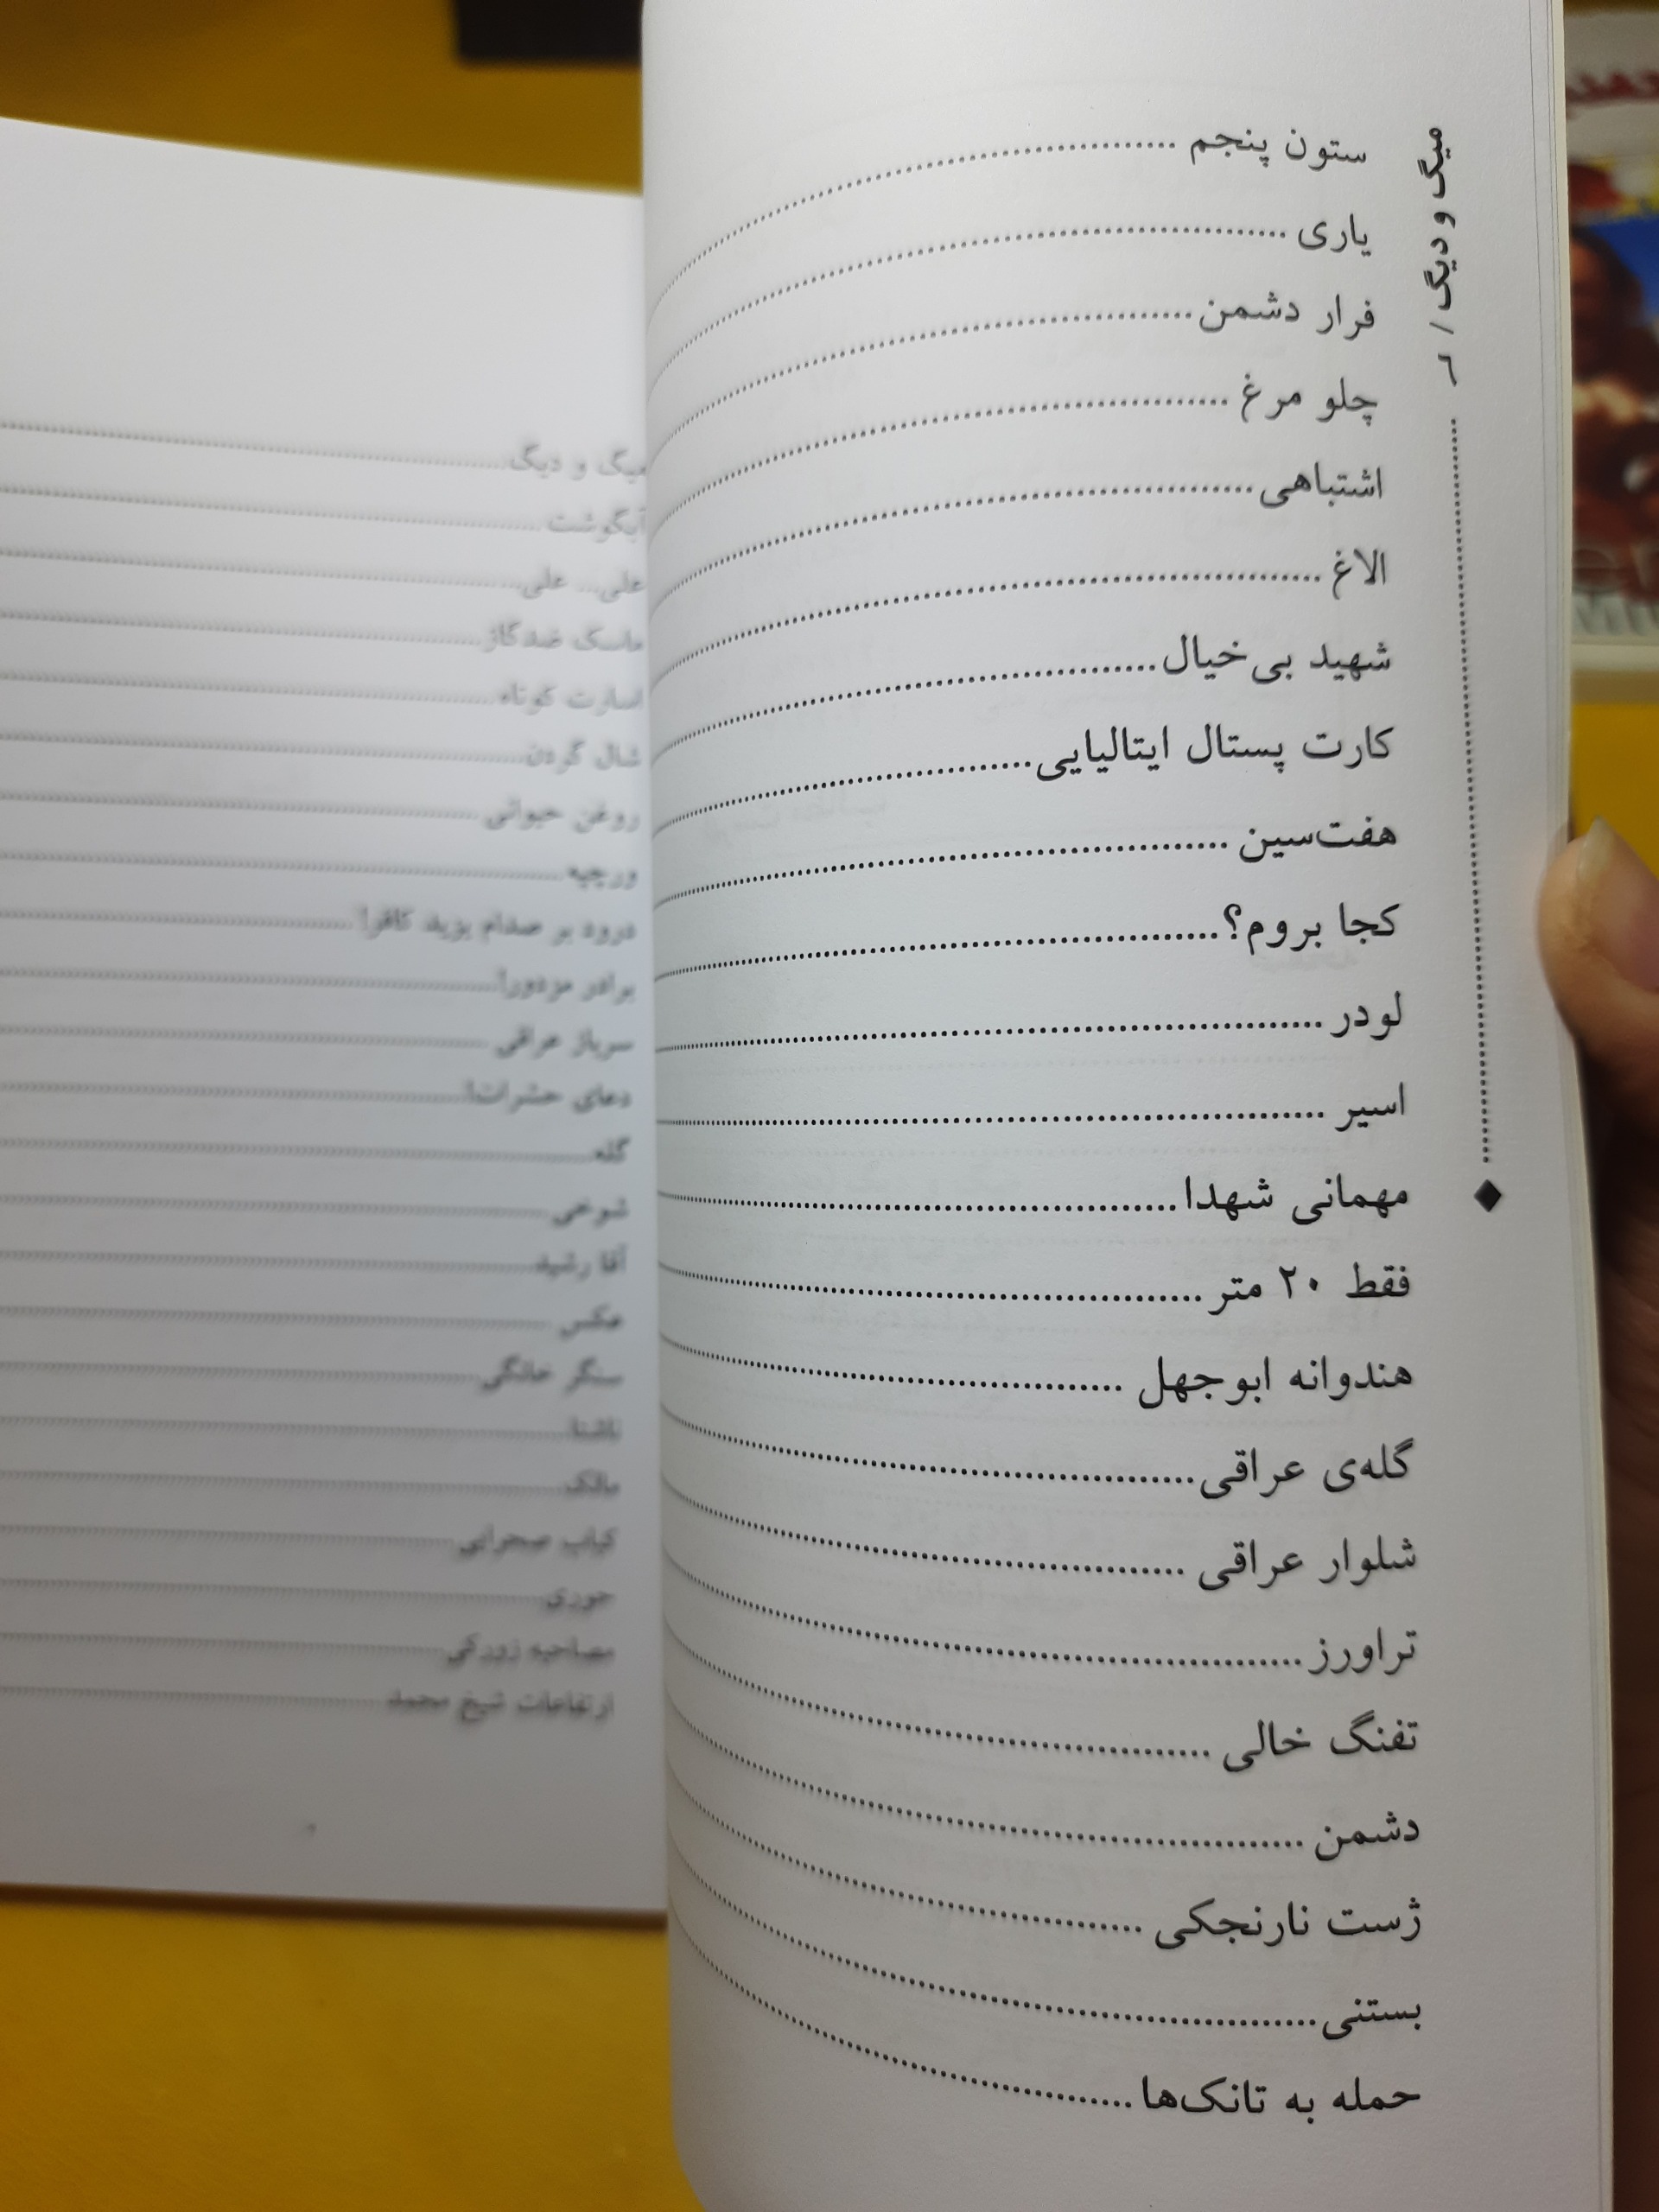 میگ و دیگ / ٦
ستون پنجم
یاری
فرار دشمن
چلو مرغ
اشتباهی
الاغ
شهید بی‌خیال
کارت پستال ایتالیایی
هفت‌سین
کجا بروم؟
لودر
اسیر
مهمانی شهدا
فقط ۲۰ متر
هندوانه ابوجهل
گله‌ی عراقی
شلوار عراقی
تراورز
تفنگ خالی
دشمن
ژست نارنجکی
بستنی
حمله به تانک‌ها
میگ و دیگ
آبگوشت
علی... علی
ماسک ضدگاز
اسارت کوتاه
شال گردن
روغن حیوانی
ورجیه
درود بر صدام یزید کافر!
برادر مزدور!
سرباز عراقی
دعای حشرات!
گله
شوخی
آقا رشید
عکس
سنگر خانگی
ناشتا
کباب صحرایی
حوری
مصاحبه زورکی
ارتفاعات شیخ محمد